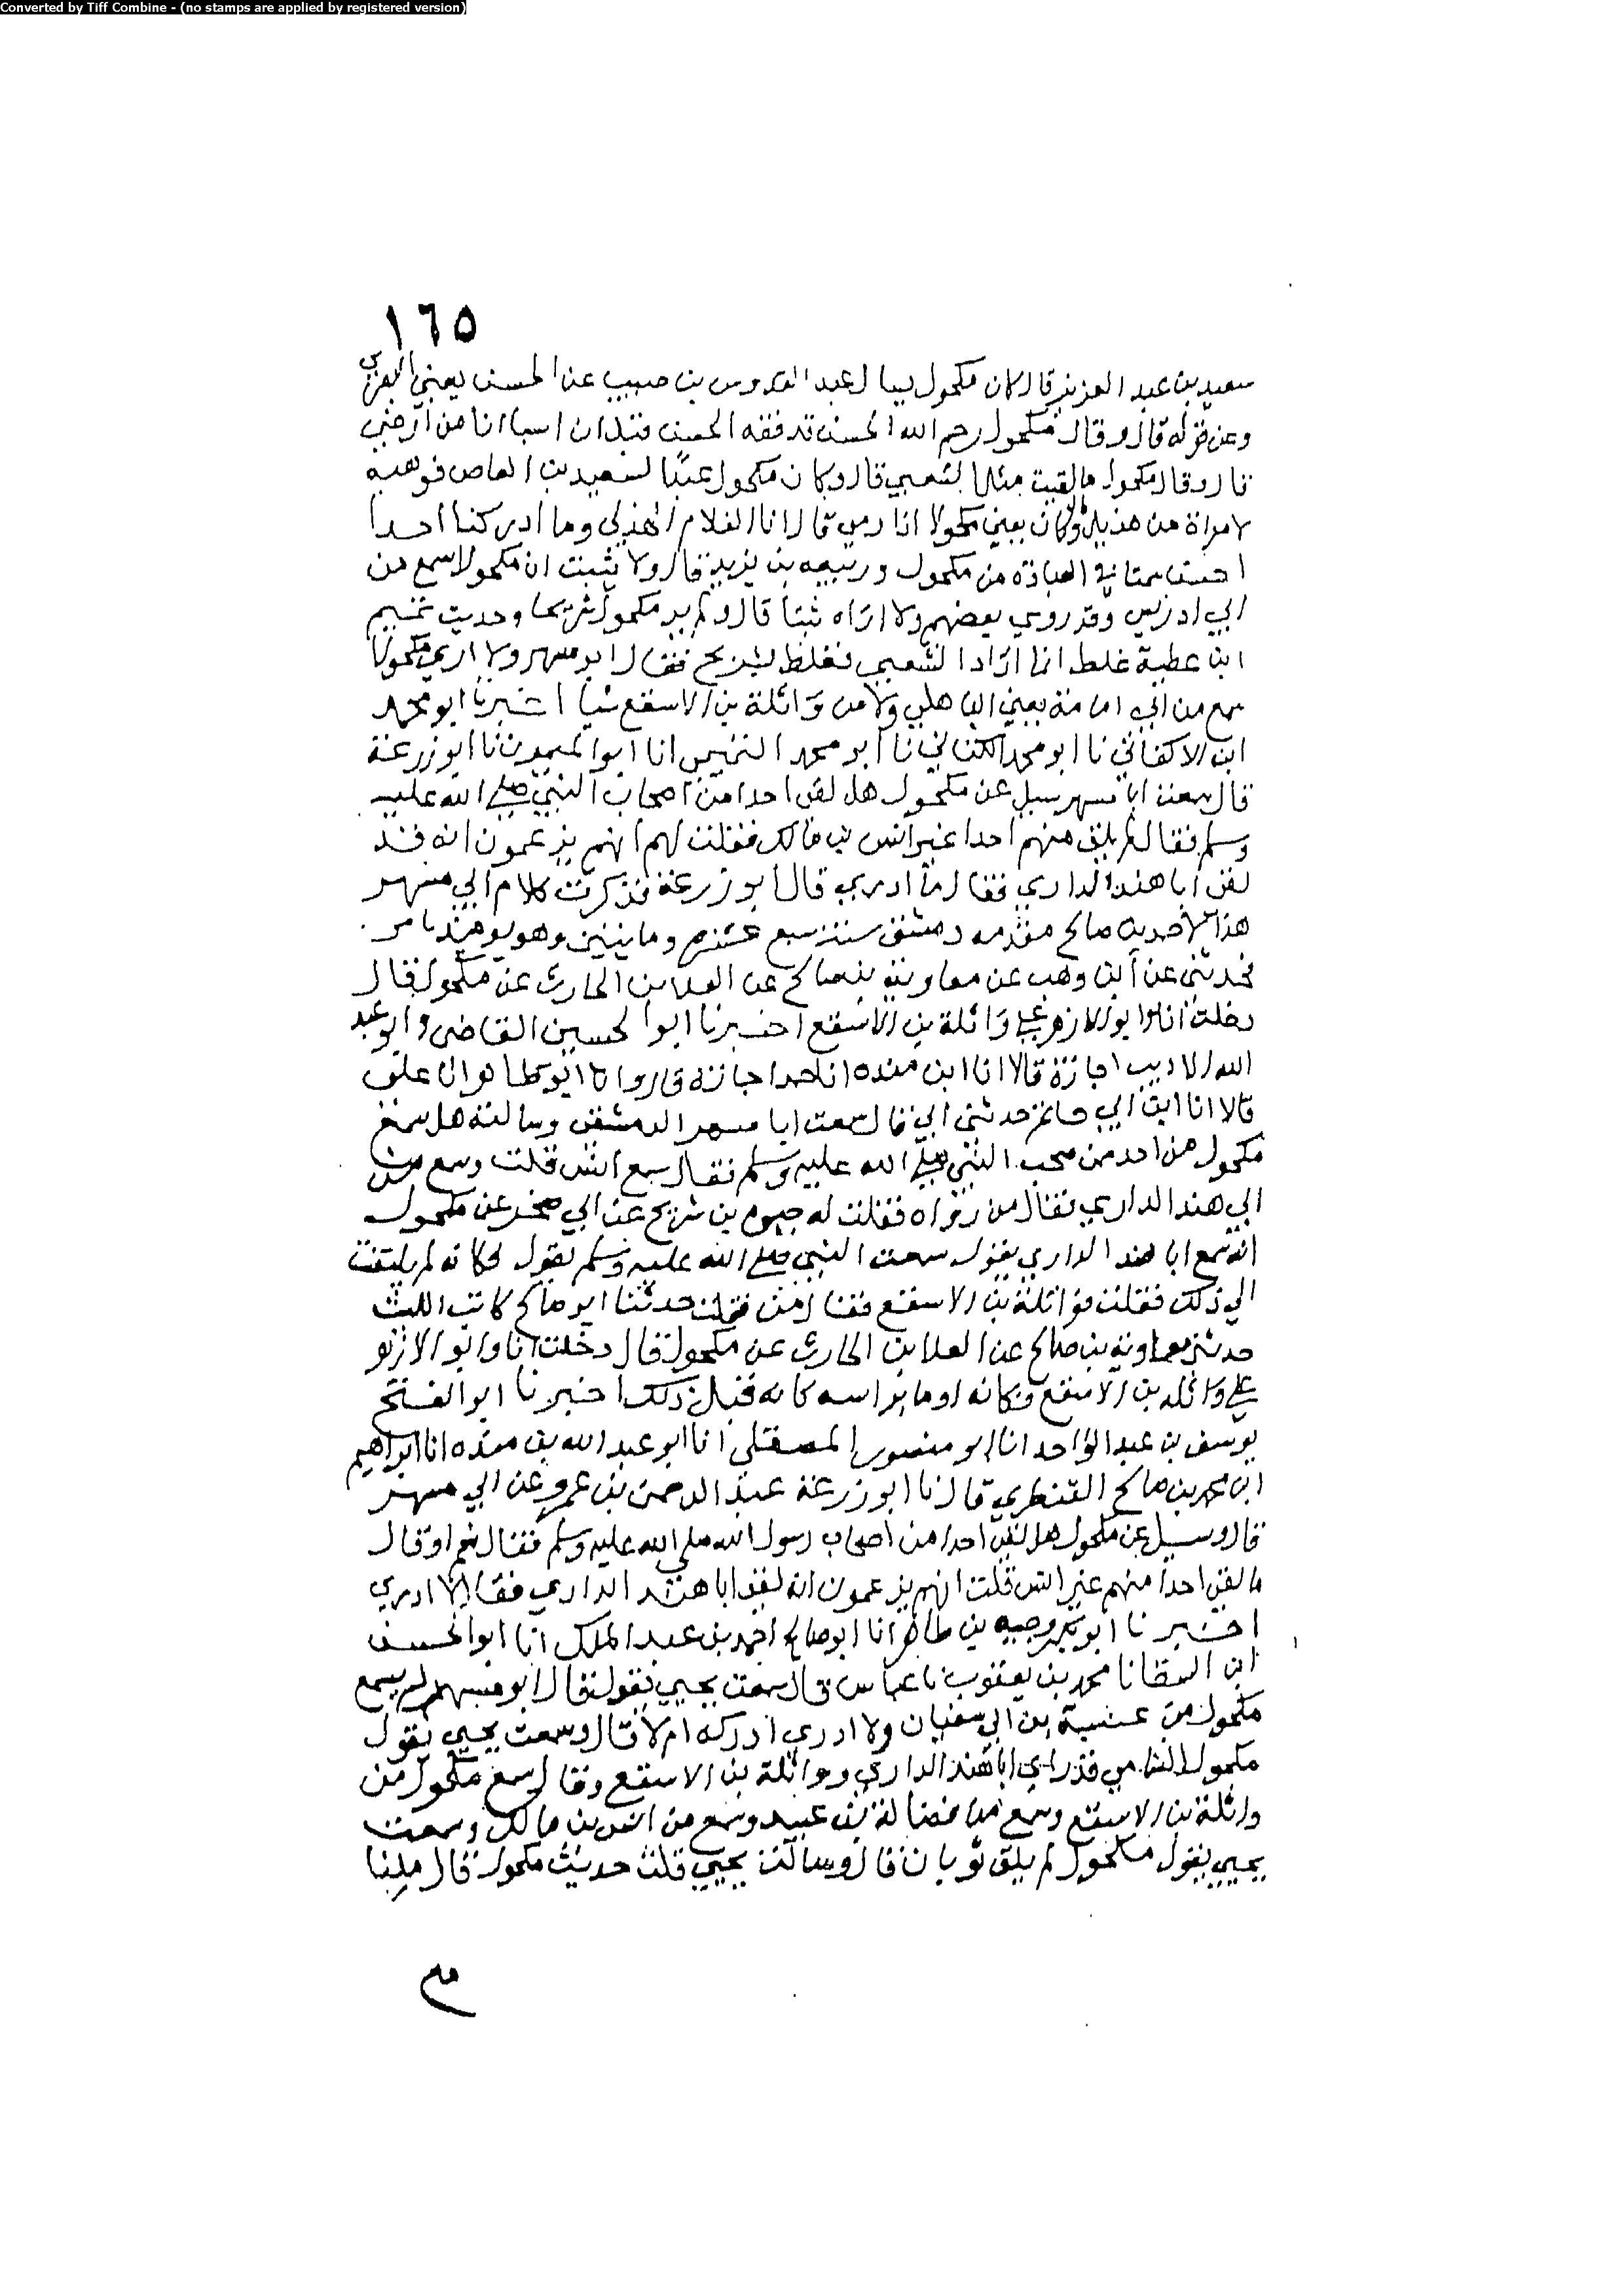 Converted by Tiff Combine - (no stamps are applied by registered version)
١٦٥
سعيد بن عبد العزيز قال كان مكحول يسال عبد القدوس بن حبيب عن الحسن يعني البصري
وعن قوله قال وقال مكحول رحم الله الحسن قد فقه الحسن قبل ان اسبا انا من ارضي
قال وقال مكحول ما لقيت مثل الشعبي قال وكان مكحول عبدا لسعيد بن العاص فوهبه
لامراة من هذيل وكان يعني مكحولا اذا رمى قال انا الغلام الهذلي وما ادركنا احدا
احسن سمتا في العبادة من مكحول وربيعه بن يزيد قال ولا يثبت ان مكحولا سمع من
ابي ادريس وقد روي بعضهم ولا اراه ثبتا قال ولم ير مكحول شريحا وحديث تميم
ابن عطية غلط انما اراد الشعبي فغلط بشريح فقال ابو مسهر ولا اري مكحولا
سمع من ابي امامة يعني الباهلي ولا من واثلة بن الاسقع شيا اخبرنا ابو محمد
ابن الاكفاني نا ابو محمد الكتاني نا ابو محمد التميمي انا ابو الميمون نا ابو زرعة
قال سمعت ابا مسهر سيل عن مكحول هل لقي احدا من اصحاب النبي صلى الله عليه
وسلم فقال لم يلق منهم احدا غير انس بن مالك فقلت لهم انهم يزعمون انه قد
لقي ابا هند الداري فقال ما ادري قال ابو زرعة فذكرت كلام ابي مسهر
هذا لاحمد بن صالح مقدمه دمشق سنة سبع عشرة ومايتين وهو يوميذ
فحدثني عن ابن وهب عن معاوية بن صالح عن العلا بن الحارث عن مكحول قال
دخلت انا وابو الازهر على واثلة بن الاسقع اخبرنا ابو الحسين القاضي وابو عبد
الله الاديب اجازة قالا انا ابن منده انا حمد اجازة قال وانا ابو طاهر انا علي
قالا انا ابن ابي حاتم حدثني ابي قال سمعت ابا مسهر الدمشقي وسالته هل سمع
مكحول من احد من صحب النبي صلى الله عليه وسلم فقال سمع انس قلت وسمع من
ابي هند الداري فقال من رواه فقلت له حيوة بن شريح عن ابي صخر عن مكحول
انه سمع ابا هند الداري يقول سمعت النبي صلى الله عليه وسلم يقول فكانه لم يلتفت
الي ذلك فقلت فواثلة بن الاسقع فقال من فقلت حدثنا ابو صالح كاتب الليث
حدثني معاوية بن صالح عن العلا بن الحارث عن مكحول قال دخلت انا وابو الازهر
على واثله بن الاسقع فكانه اوما براسه كانه قبل ذلك اخبرنا ابو الفتح
يوسف بن عبد الواحد انا ابو منصور المصقلي انا ابو عبد الله بن منده انا ابراهيم
ابن محمد بن صالح القنطري قال نا ابو زرعة عبد الرحمن بن عمرو عن ابي مسهر
قال وسيل عن مكحول هل لقي احدا من اصحاب رسول الله صلى الله عليه وسلم فقال نعم او قال
ما لقي احدا منهم غير انس قلت انهم يزعمون انه لقي ابا هند الداري فقال لا ادري
اخبرنا ابو بكر وجيه بن طاهر انا ابو صالح احمد بن عبد الملك انا ابو الحسن
ابن السقا انا محمد بن يعقوب نا عباس قال سمعت يحيي يقول قال ابو مسهر لم يسمع
مكحول من عنبسة بن ابي سفيان ولا ادري ادركه ام لا قال وسمعت يحيي يقول
مكحول الشامي قد راي ابا هند الداري وواثلة بن الاسقع وقال سمع مكحول من
واثلة بن الاسقع وسمع من فضالة بن عبيد وسمع من انس بن مالك وسمعت
يحيي يقول مكحول لم يلق ثوبان قال وسالت يحيي قلت حديث مكحول قال